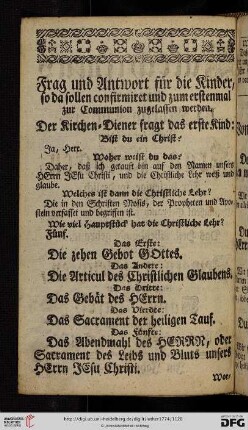 Frag und Antwort für die Kinder,
so da sollen confirmiret und zum erstenmal
zur Communion zugelassen werden.
Der Kirchen-Diener fragt das erste Kind:
Bist du ein Christ?
Ja, Herr.
Woher weist du das?
Daher, daß ich getauft bin auf den Namen unsers
HErrn JEsu Christi, und die Christliche Lehr weiß und
glaube.
Welches ist dann die Christliche Lehr?
Die in den Schriften Mosis, der Propheten und Apo-
steln verfasset und begriffen ist.
Wie viel Hauptstück hat die Christliche Lehr?
Fünf.
Das Erste:
Die zehen Gebot GOttes.
Das Andere:
Die Articul des Christlichen Glaubens.
Das Dritte:
Das Gebät des HErrn.
Das Vierdte:
Das Sacrament der heiligen Tauf.
Das Fünfte:
Das Abendmahl des HERRN, oder
Sacrament des Leibs und Bluts unsers
HErrn JEsu Christi.
DFG